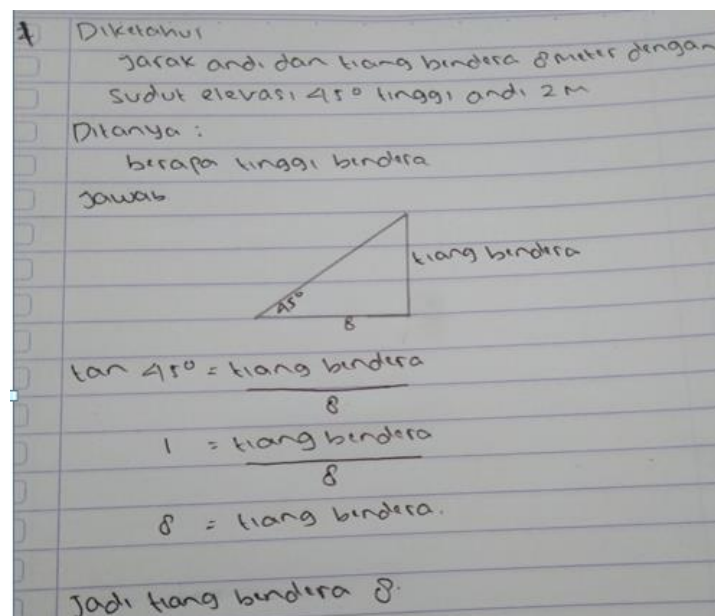 1 Diketahui
Jarak andi dan tiang bendera 8 meter dengan
sudut elevasi 45° tinggi andi 2 m
Ditanya :
berapa tinggi bendera
Jawab
tiang bendera
45°
8
tan 45° = tiang bendera
8
1 = tiang bendera
8
8 = tiang bendera.
Jadi tiang bendera 8.